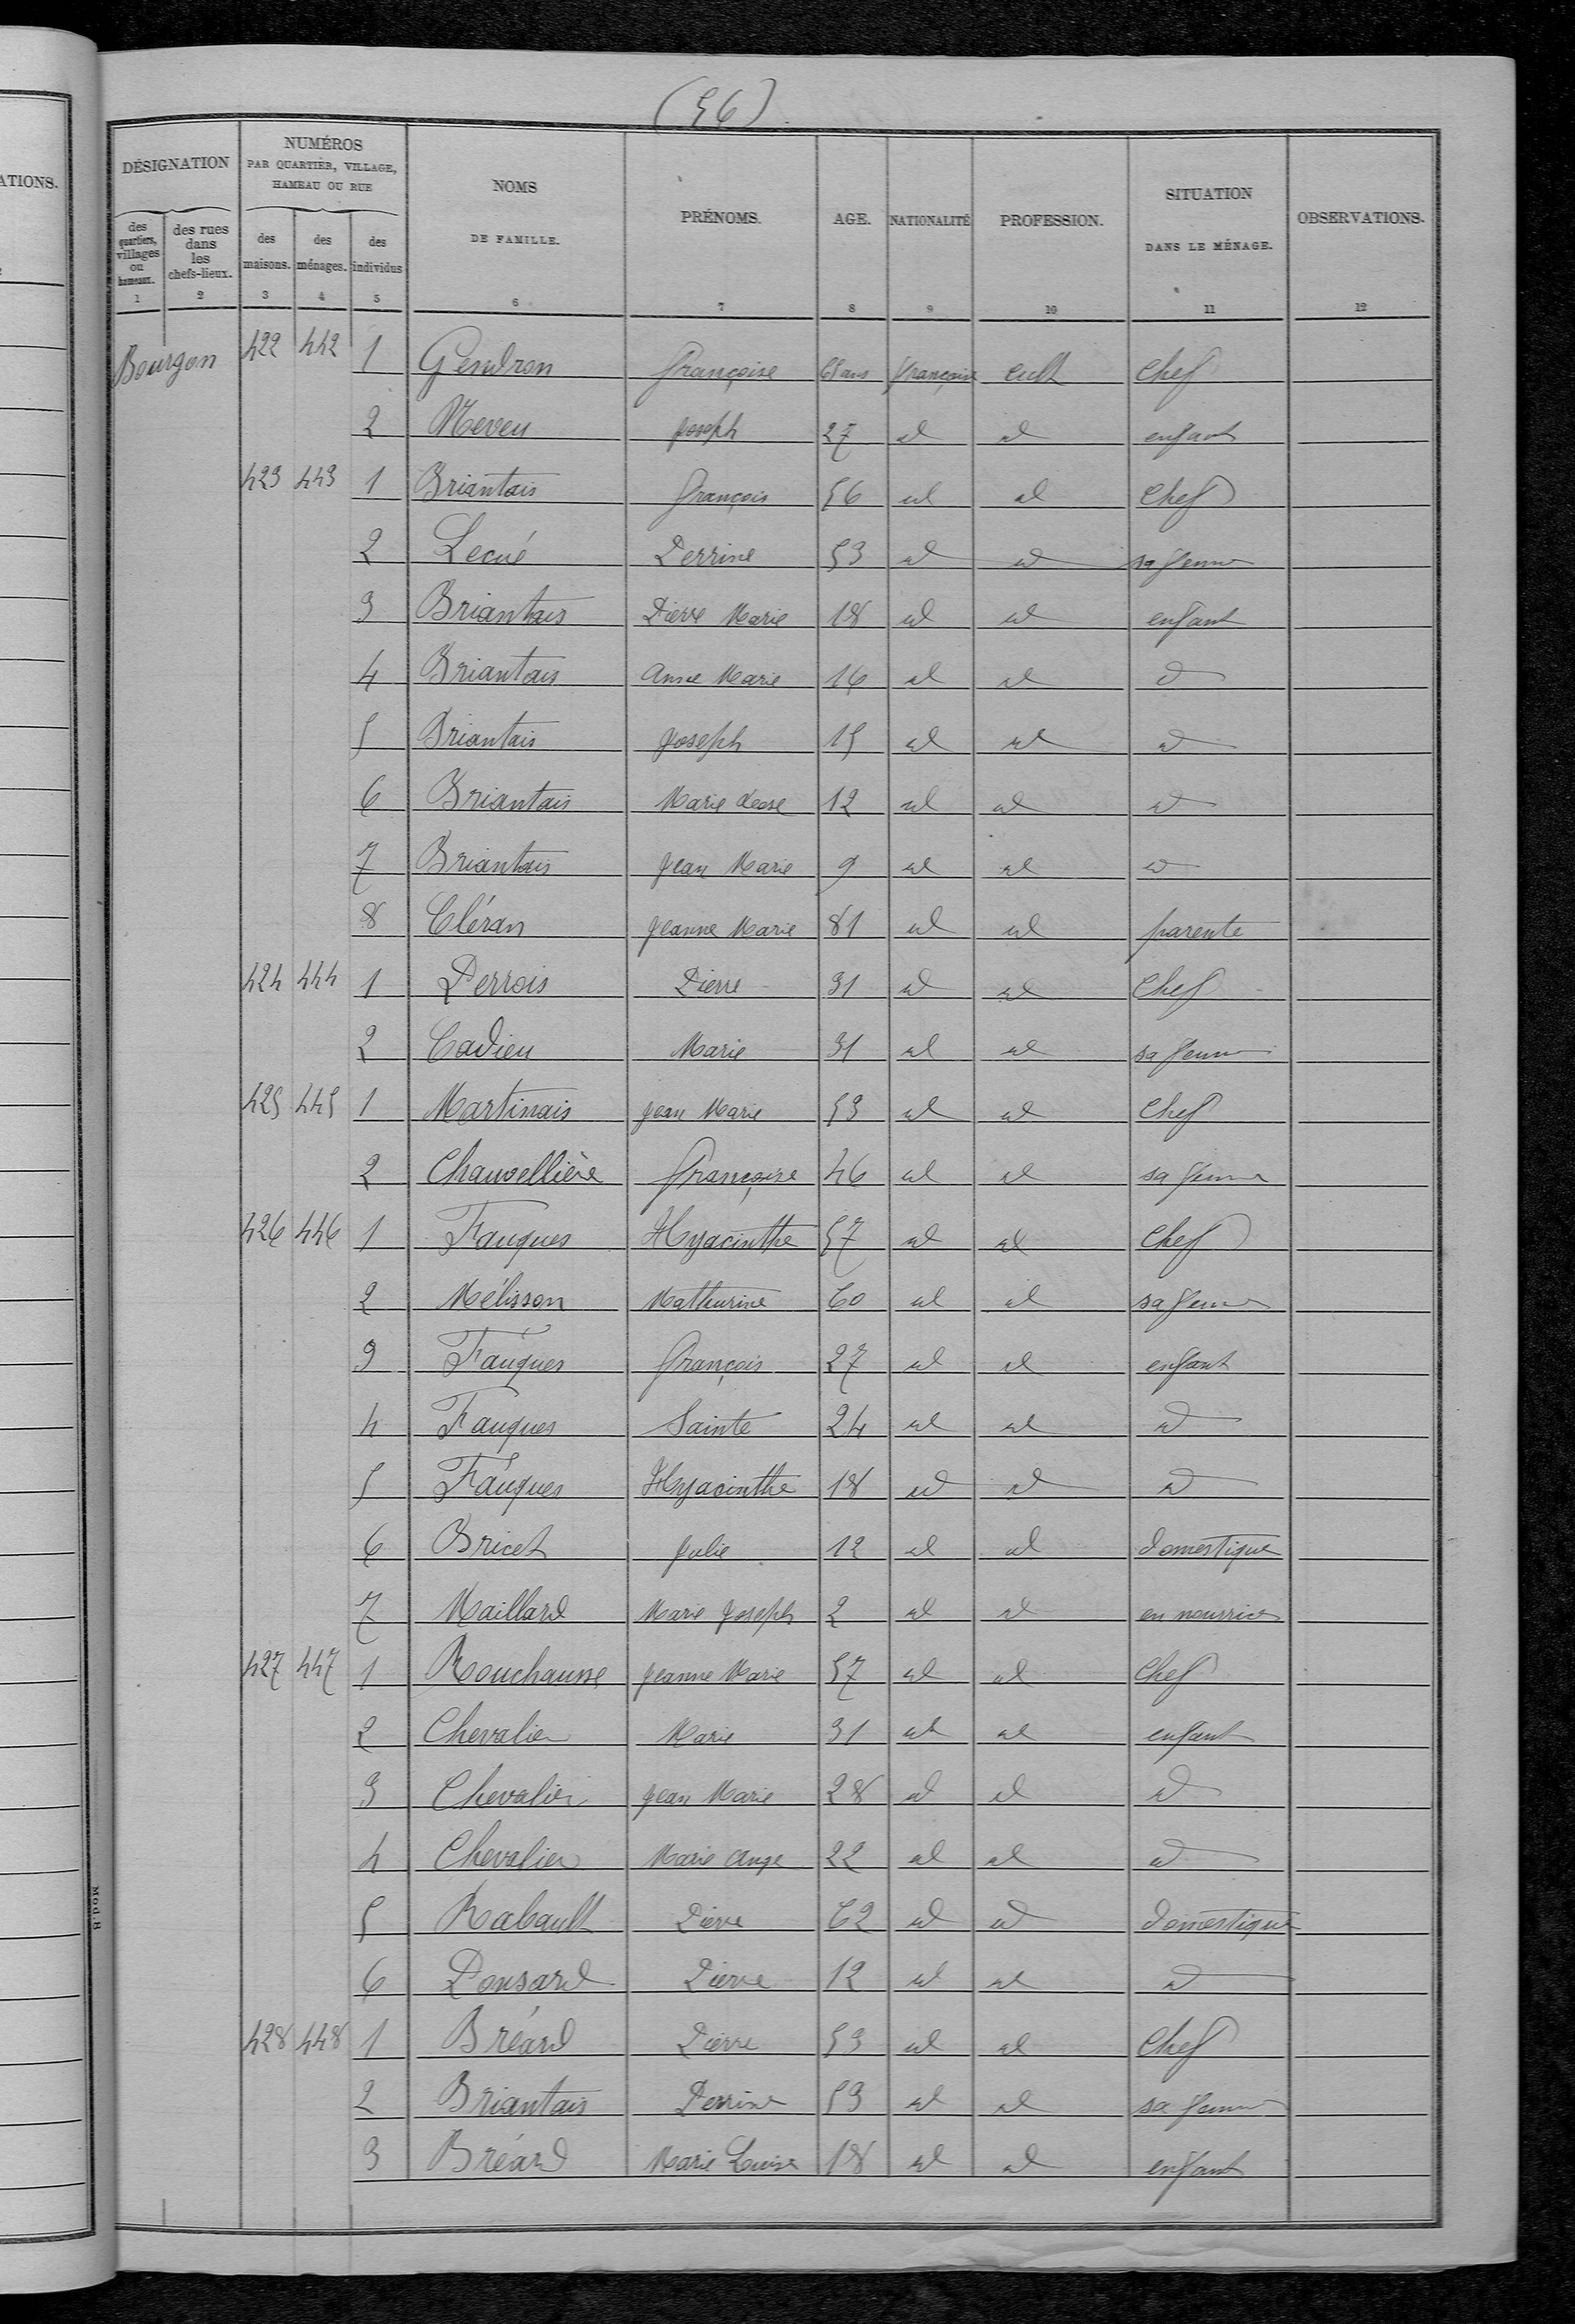 (56)
ATIONS.
DÉSIGNATION
NUMÉROS
PAR QUARTIER, VILLAGE,
HAMEAU OU RUE
NOMS
DE FAMILLE.
PRÉNOMS.
AGE.
NATIONALITÉ
PROFESSION.
SITUATION
DANS LE MÉNAGE.
OBSERVATIONS.
des quartiers, villages ou hameaux.
des rues dans les chefs-lieux.
des maisons.
des ménages.
des individus
1 2 3 4 5 6 7 8 9 10 11 12
Bourgon 422 442 1 Gendron Françoise 65 ans française cult chef
2 Neveu Joseph 27 id id enfant
423 443 1 Briantais François 56 id id chef
2 Lecué Perrine 53 id id sa femme
3 Briantais Pierre Marie 18 id id enfant
4 Briantais Anne Marie 16 id id id
5 Briantais Joseph 15 id id id
6 Briantais Marie 12 id id id
7 Briantais Jean Marie 9 id id id
8 Cléran Jeanne Marie 81 id id parente
424 444 1 Perrois Pierre 31 id id chef
2 Cadieu Marie 31 id id sa femme
425 445 1 Martinais Jean Marie 53 id id chef
2 Chauvellière Françoise 46 id id sa femme
426 446 1 Fauques Hyacinthe 57 id id chef
2 Mélisson Mathurine 60 id id sa femme
3 Fauques François 27 id id enfant
4 Fauques Sainte 24 id id id
5 Fauques Hyacinthe 18 id id id
6 Bricet Julie 12 id id domestique
7 Maillard Marie Joseph 2 id id en nourrice
427 447 1 Rouchausse Jeanne Marie 57 id id chef
2 Chevalier Marie 31 id id enfant
3 Chevalier Jean Marie 28 id id id
4 Chevalier Marie Ange 22 id id id
5 Rabault Pierre 62 id id domestique
6 Ponsard Pierre 12 id id id
428 448 1 Bréard Pierre 53 id id chef
2 Briantais Perrine 53 id id sa femme
3 Bréard Marie Louise 18 id id enfant
Mod. 8